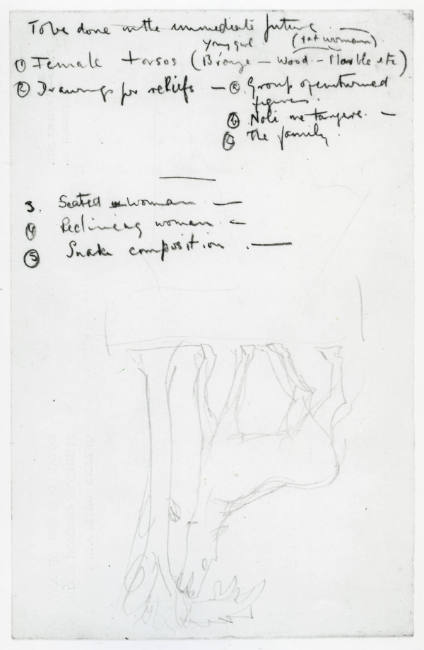 To be done in the immediate future —
young girl (fat woman)
① Female torsos (Bronze – Wood – Marble etc)
② Drawings for reliefs — ⓐ Group of entwined
figures.
ⓑ Noli me tangere. —
ⓒ The family.
3. Seated woman —
④ Reclining woman. –
⑤ Snake composition. —